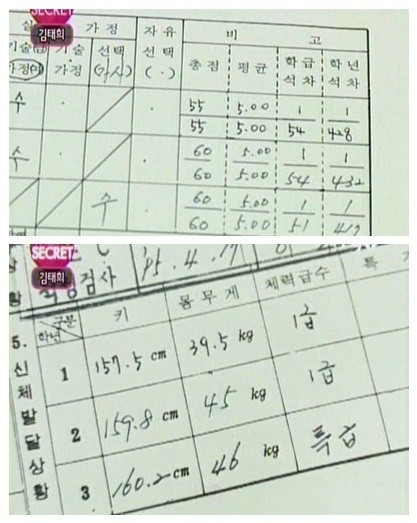 SECRET
김태희
실 가정 자유 비 고
기술 선택 선택 총점 평균 학급 학년
가정 (가사) (·) 석차 석차
수 · · 55/55 5.00/5.00 1/54 1/428
수 · · 60/60 5.00/5.00 1/54 1/432
수 · 60/60 5.00/5.00 1/51 1/417
SECRET
김태희
검사 '95.4.17
구분 학년 키 몸무게 체력급수 특
5. 신체발달상황
1 157.5 cm 39.5 kg 1급
2 159.8 cm 45 kg 1급
3 160.2 cm 46 kg 특급